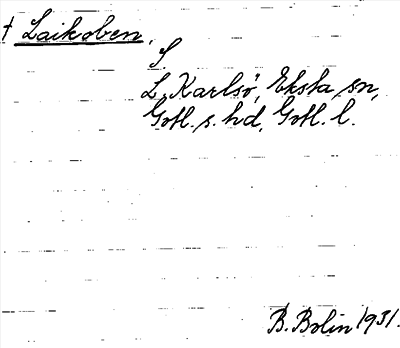 † Laikoben,
S.
L. Karlsö, Eksta sn,
Gotl. s. hd, Gotl. l.
B. Bolin 1931.